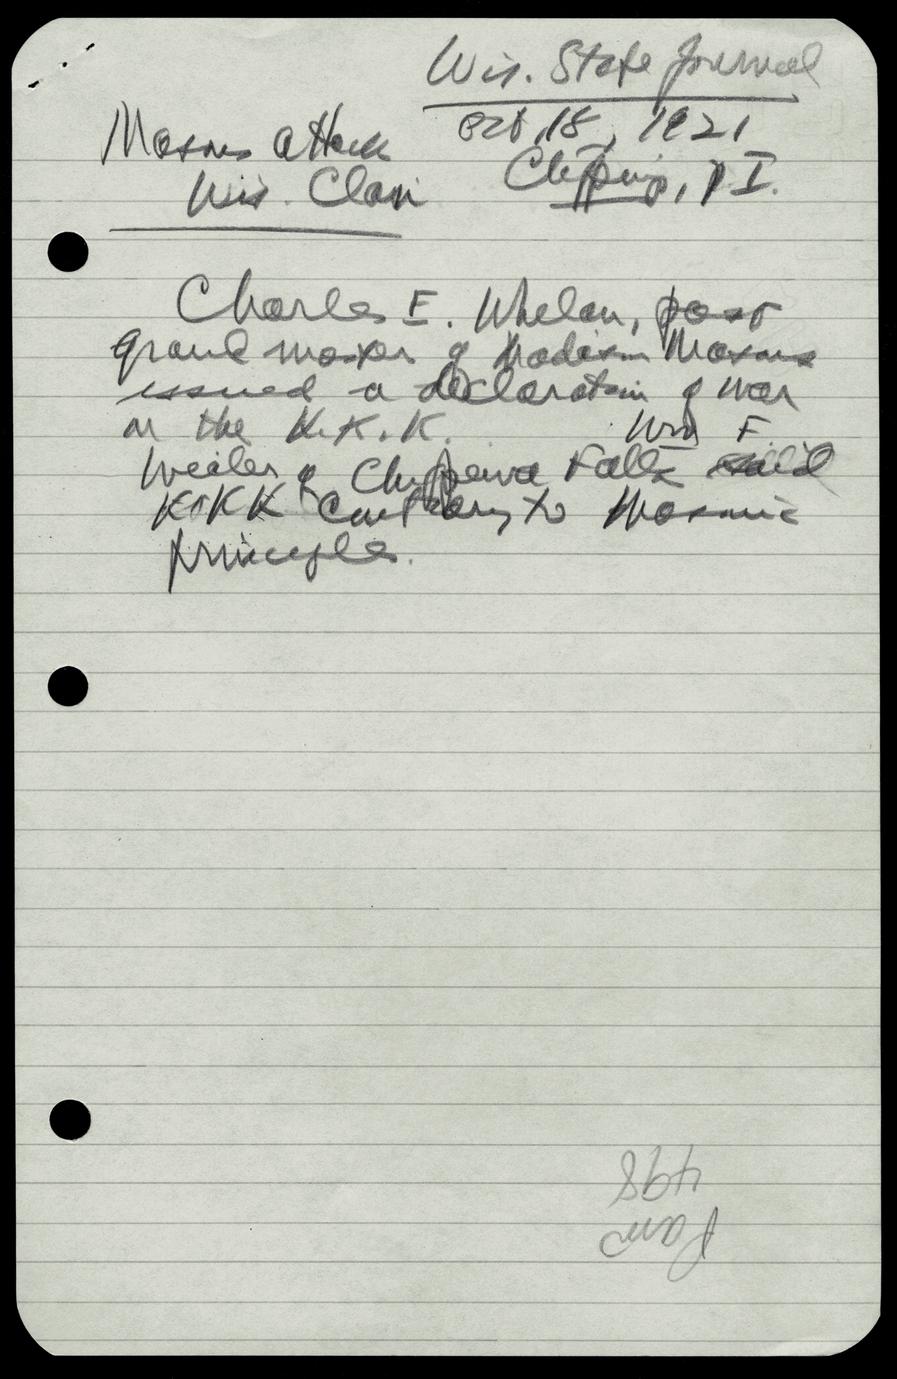 Wis. State Journal
Oct 18, 1921
Clipping, p I.
Masons attack
Wis. Clan
Charles E. Whelan, past
grand master of Madison Masons
issued a declaration of war
on the K.K.K. Wm F
Weiler of Chippewa Falls said
KKK contrary to Masonic
principles.
Pam
498